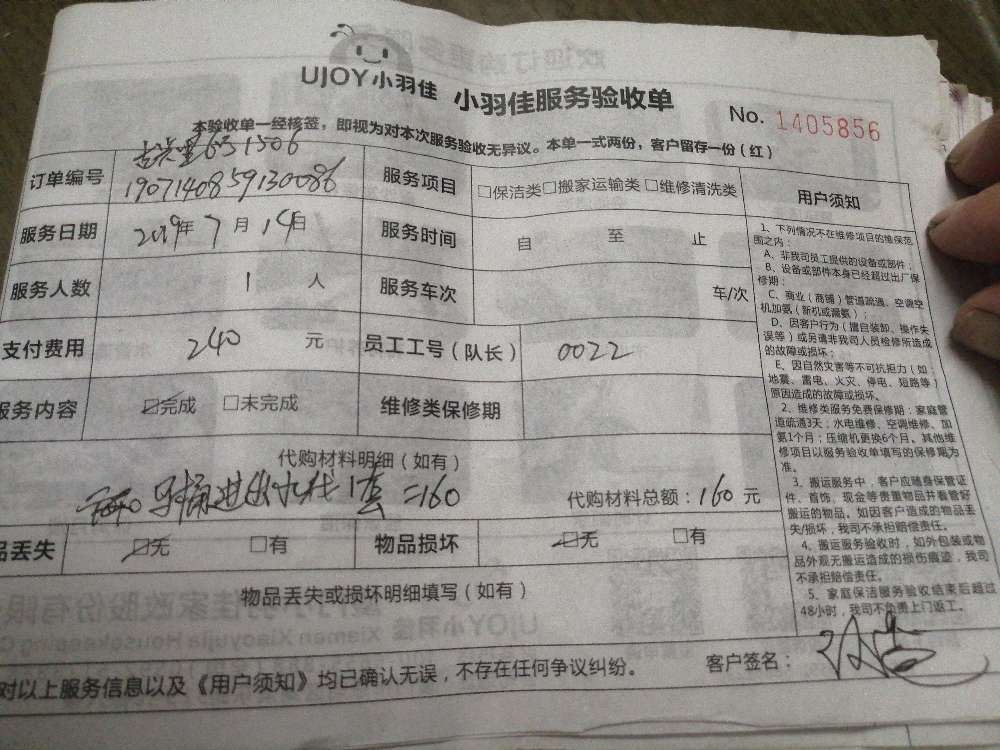 UJOY小羽佳 小羽佳服务验收单
No. 1405856
本验收单一经核签，即视为对本次服务验收无异议。本单一式两份，客户留存一份（红）
631506
订单编号 1907140859130086 服务项目 □保洁类□搬家运输类□维修清洗类
服务日期 2019年7月14日 服务时间 自 至 止
服务人数 1 人 服务车次 车/次
支付费用 240 元 员工工号（队长） 0022
服务内容 ☑完成 □未完成 维修类保修期
代购材料明细（如有）
马桶进出水栓1套=160 代购材料总额：160元
品丢失 ☑无 □有 物品损坏 ☑无 □有
物品丢失或损坏明细填写（如有）
对以上服务信息以及《用户须知》均已确认无误，不存在任何争议纠纷。
客户签名：
用户须知
1、下列情况不在维修项目的维保范
围之内：
A、非我司员工提供的设备或部件；
B、设备或部件本身已经超过出厂保
修期；
C、商业（商铺）管道疏通、空调空
机加氨（新机或漏氨）；
D、因客户行为（擅自装卸、操作失
误等）或另请非我司人员检修所造成
的故障或损坏；
E、因自然灾害等不可抗拒力（如：
地震、雷电、火灾、停电、短路等）
原因造成的故障或损坏。
2、维修类服务免费保修期：家庭管
道疏通3天；水电维修、空调维修、加
氨1个月；压缩机更换6个月。其他维
修项目以服务验收单填写的保修期为
准。
3、搬运服务中，客户应随身保管证
件、首饰、现金等贵重物品并看管好
搬运的物品。如因客户造成的物品丢
失/损坏，我司不承担赔偿责任。
4、搬运服务验收时，如外包装或物
品外观无搬运造成的损伤痕迹，我司
不承担赔偿责任。
5、家庭保洁服务验收结束后超过
48小时，我司不负责上门返工。